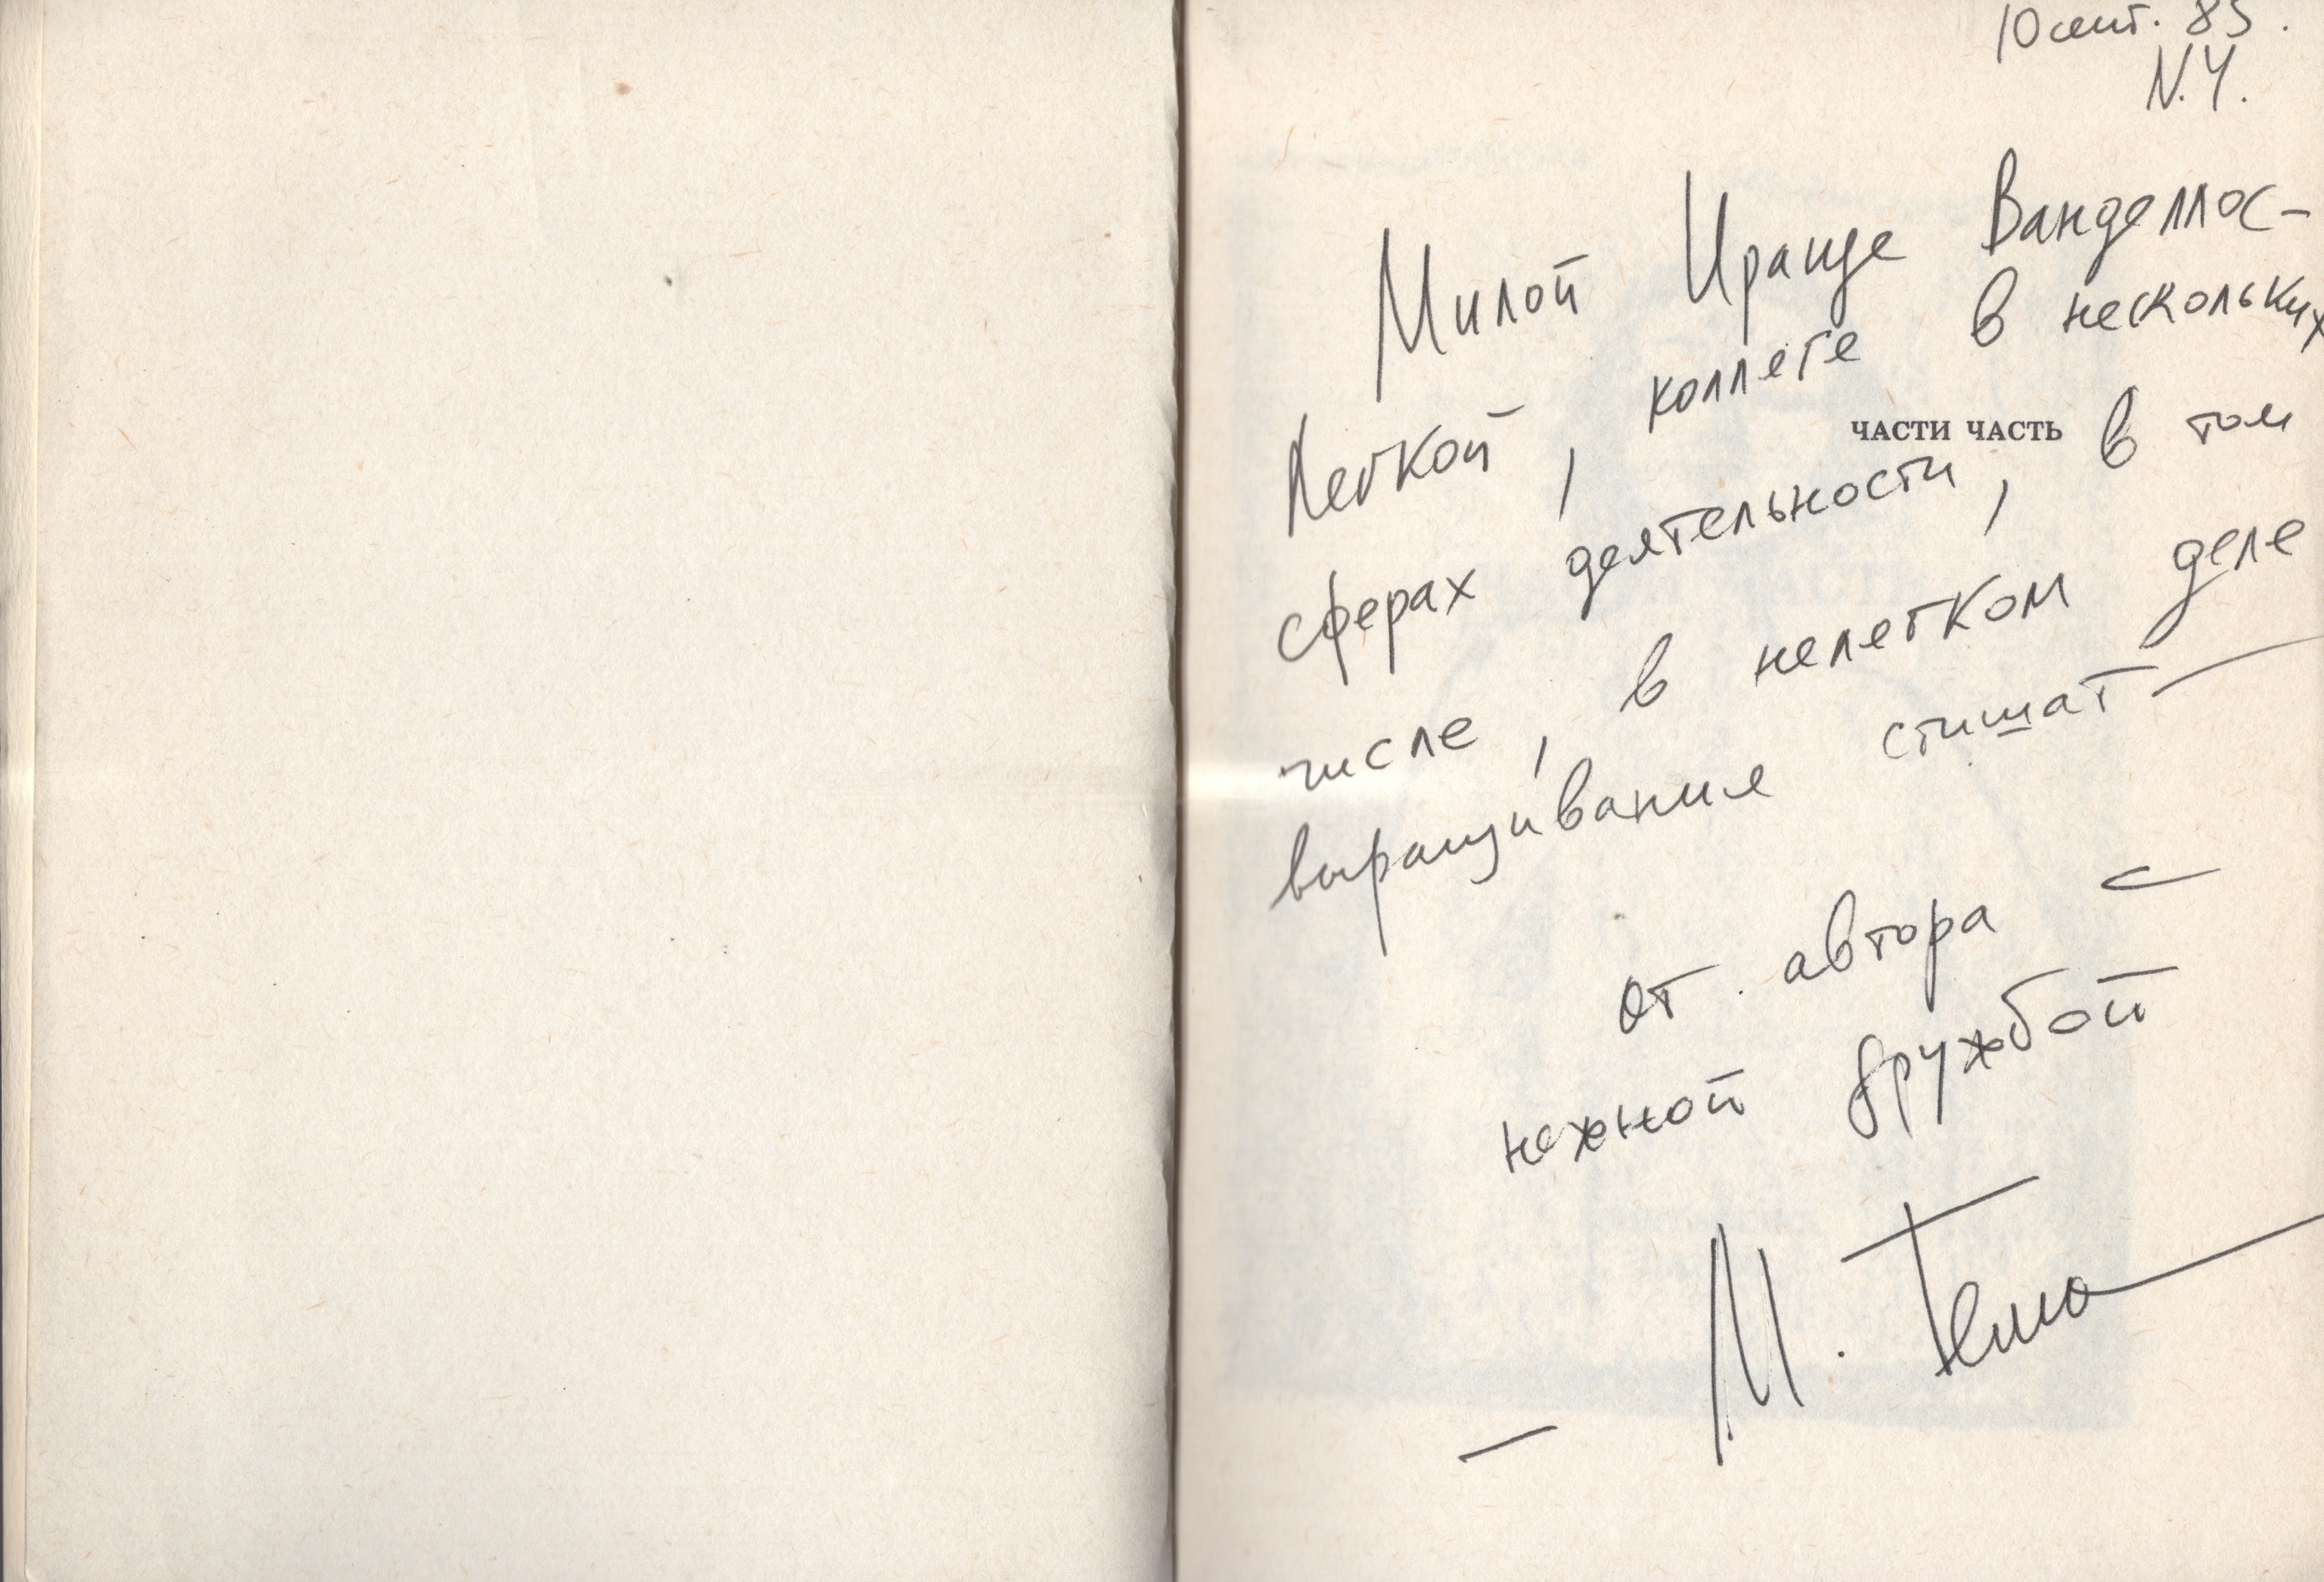 10 сент. 85.
N.Y.
Милой Ираиде Ванделлос-
Легкой, коллеге в нескольких
ЧАСТИ ЧАСТЬ
сферах деятельности, в том
числе, в нелегком деле
выращивания стишат —
от автора с
нежной дружбой
— М.